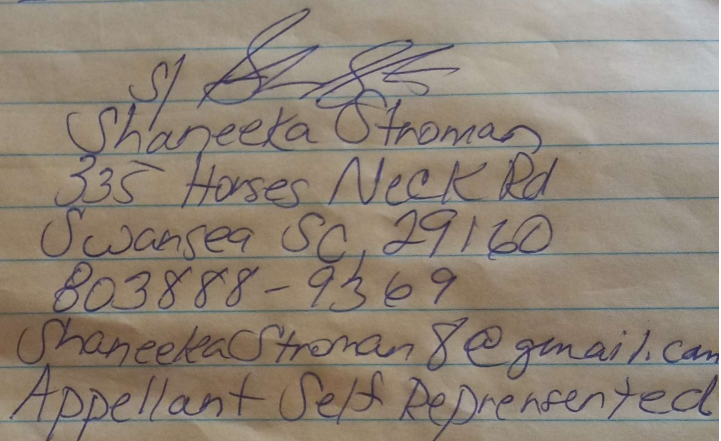 s/
Shaneeka Stroman
335 Horses Neck Rd
Swansea SC, 29160
803888-9369
ShaneekaStroman8@gmail.com
Appellant Self Reprensented